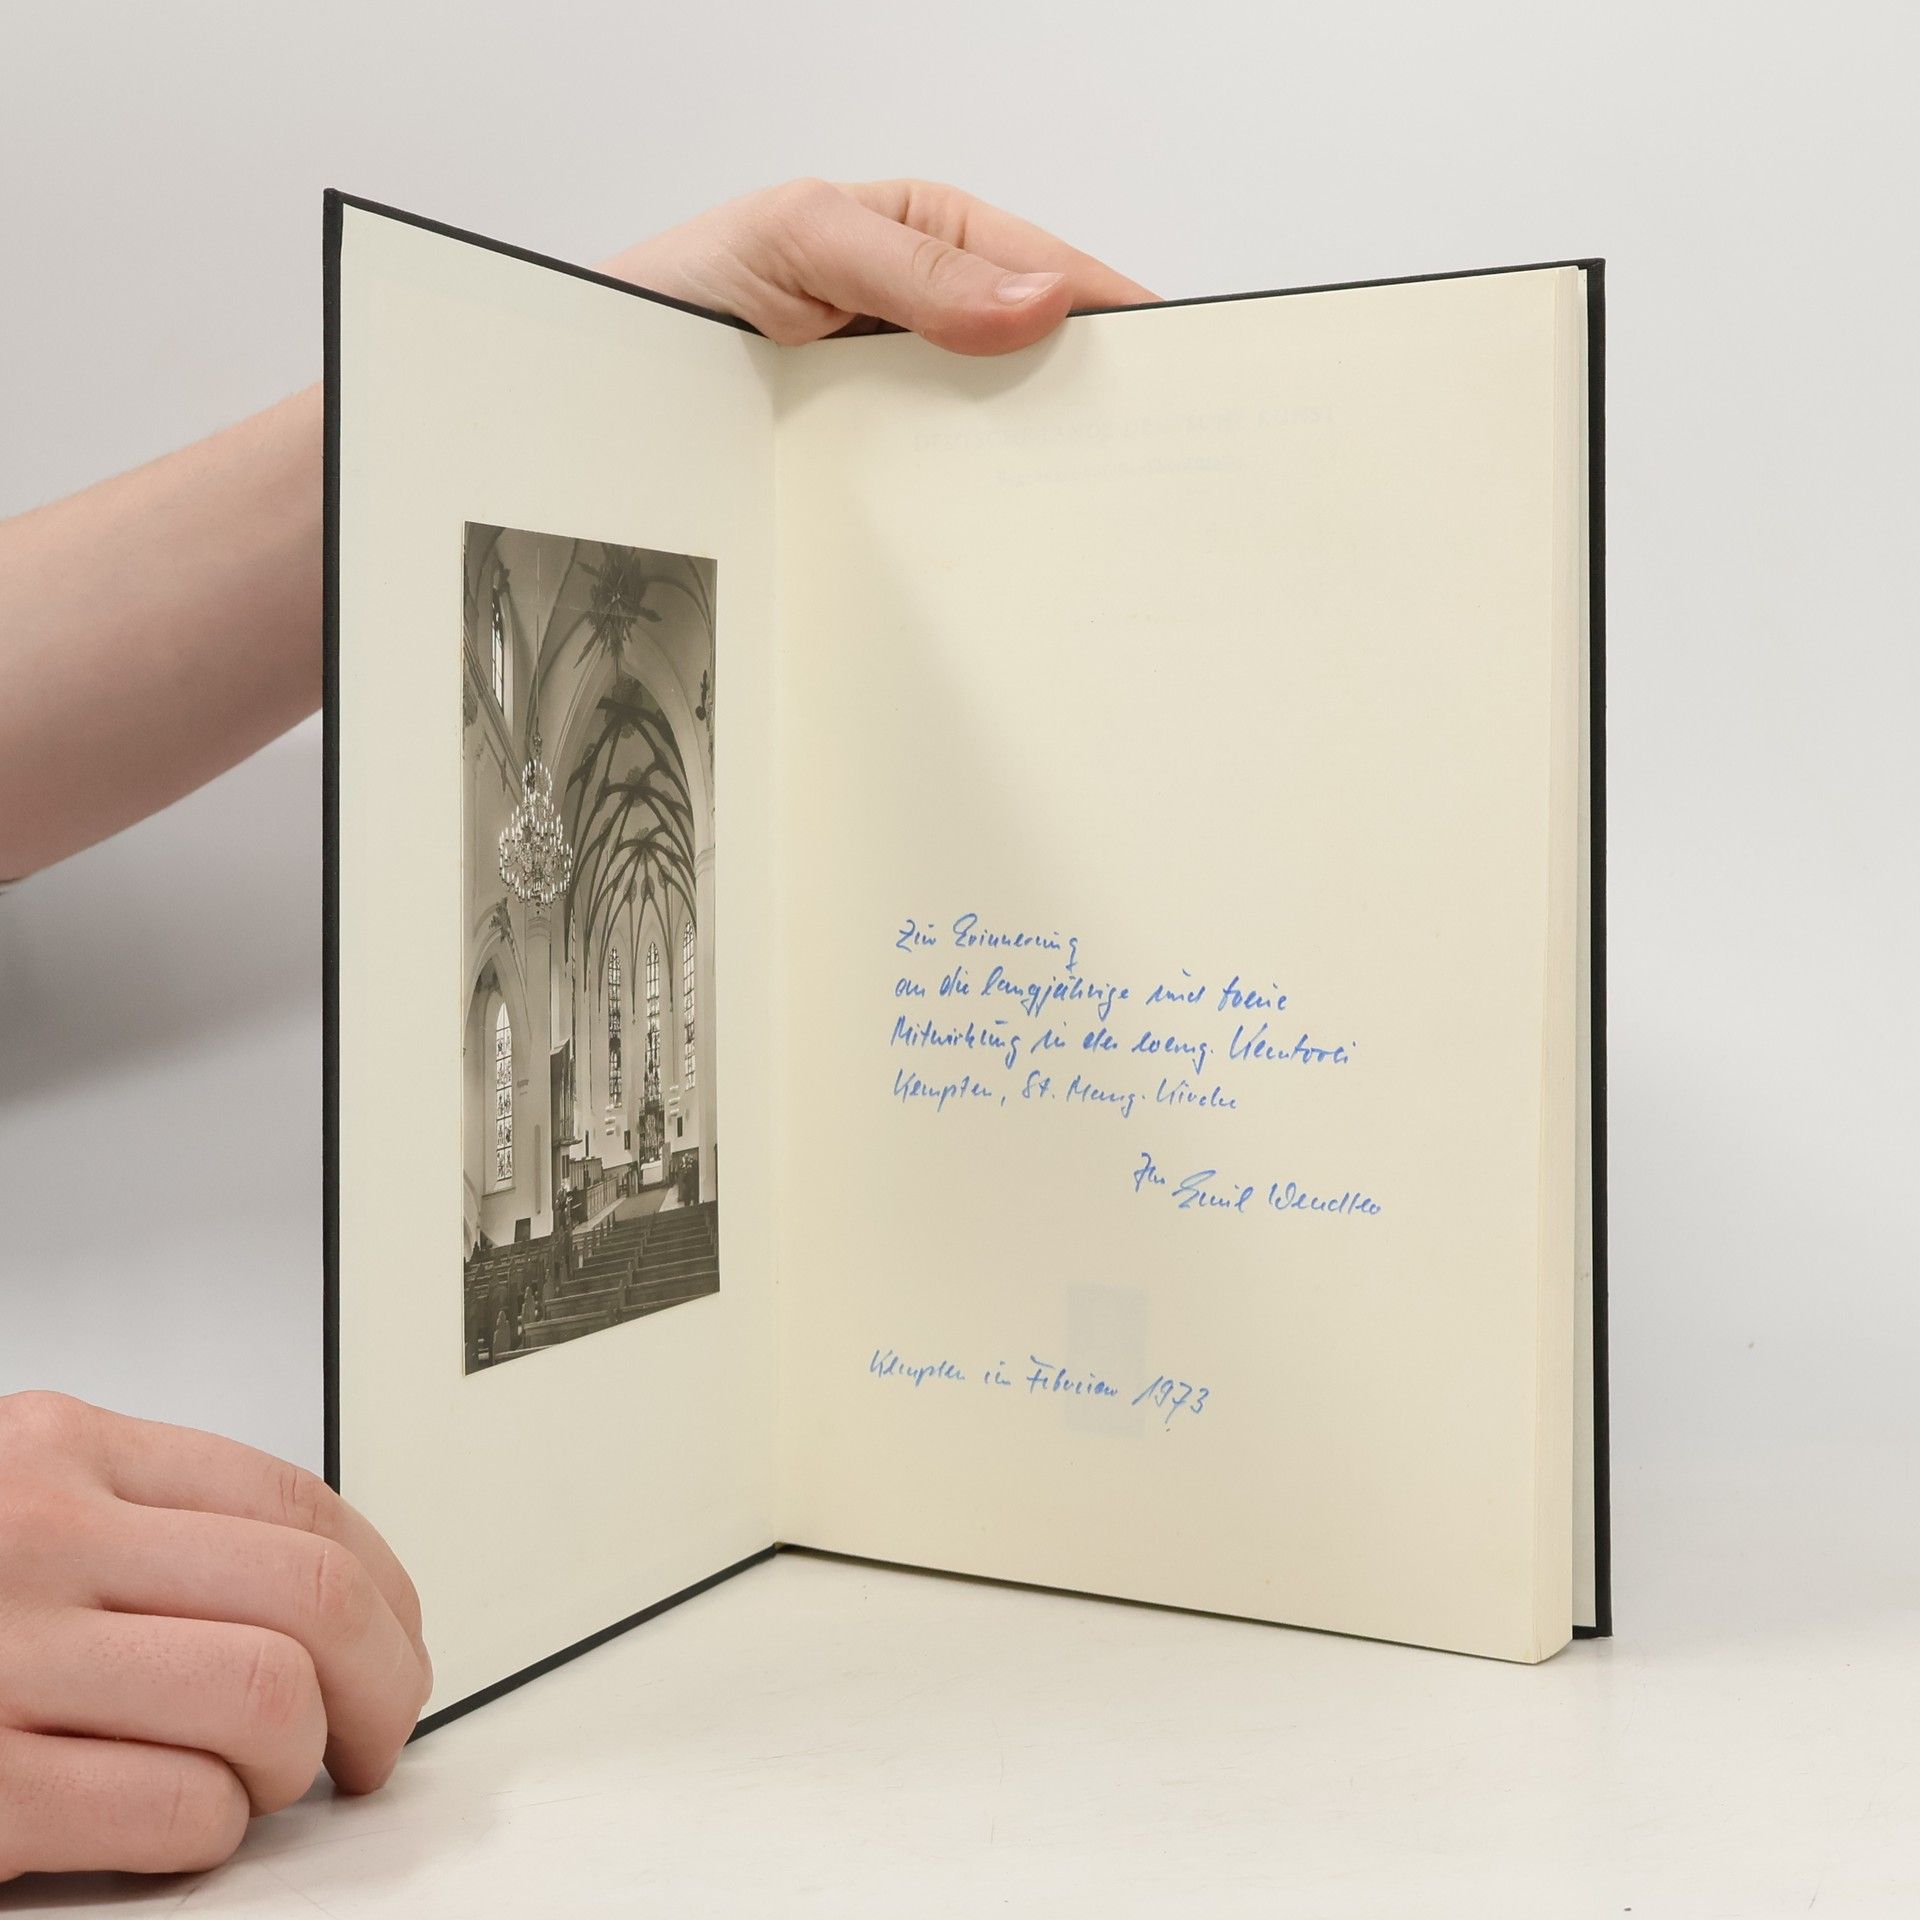 DEUTSCHE LANDE DEUTSCHE KUNST
Zur Erinnerung
an die langjährige und treue
Mitwirkung in der evang. Kantorei
Kempten, St. Mang-Kirche
Ihr Emil Wendler
Kempten im Februar 1973